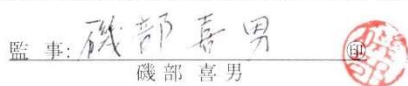 監 事: 磯部喜男 ㊞
磯 部 喜 男
磯部